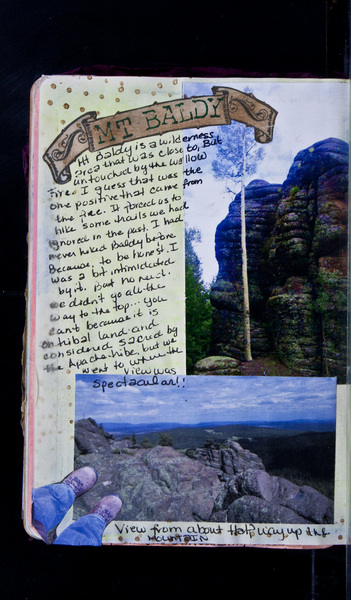 MT BALDY
Mt Baldy is a wilderness
area that was close to, But
untouched by the wallow
Fire. I guess that was the
one positive that came from
the fire. It forced us to
hike some trails we had
ignored in the past. I had
never hiked Baldy before
Because, to be honest, I
was a bit intimidated
by it. But no more.
we didn't go all the
way to the top... you
can't because it is
on tribal land and
considered sacred by
the Apache tribe, but we
went to where the
view was
Spectacular!!
View from about Half way up the
MOUNTAIN